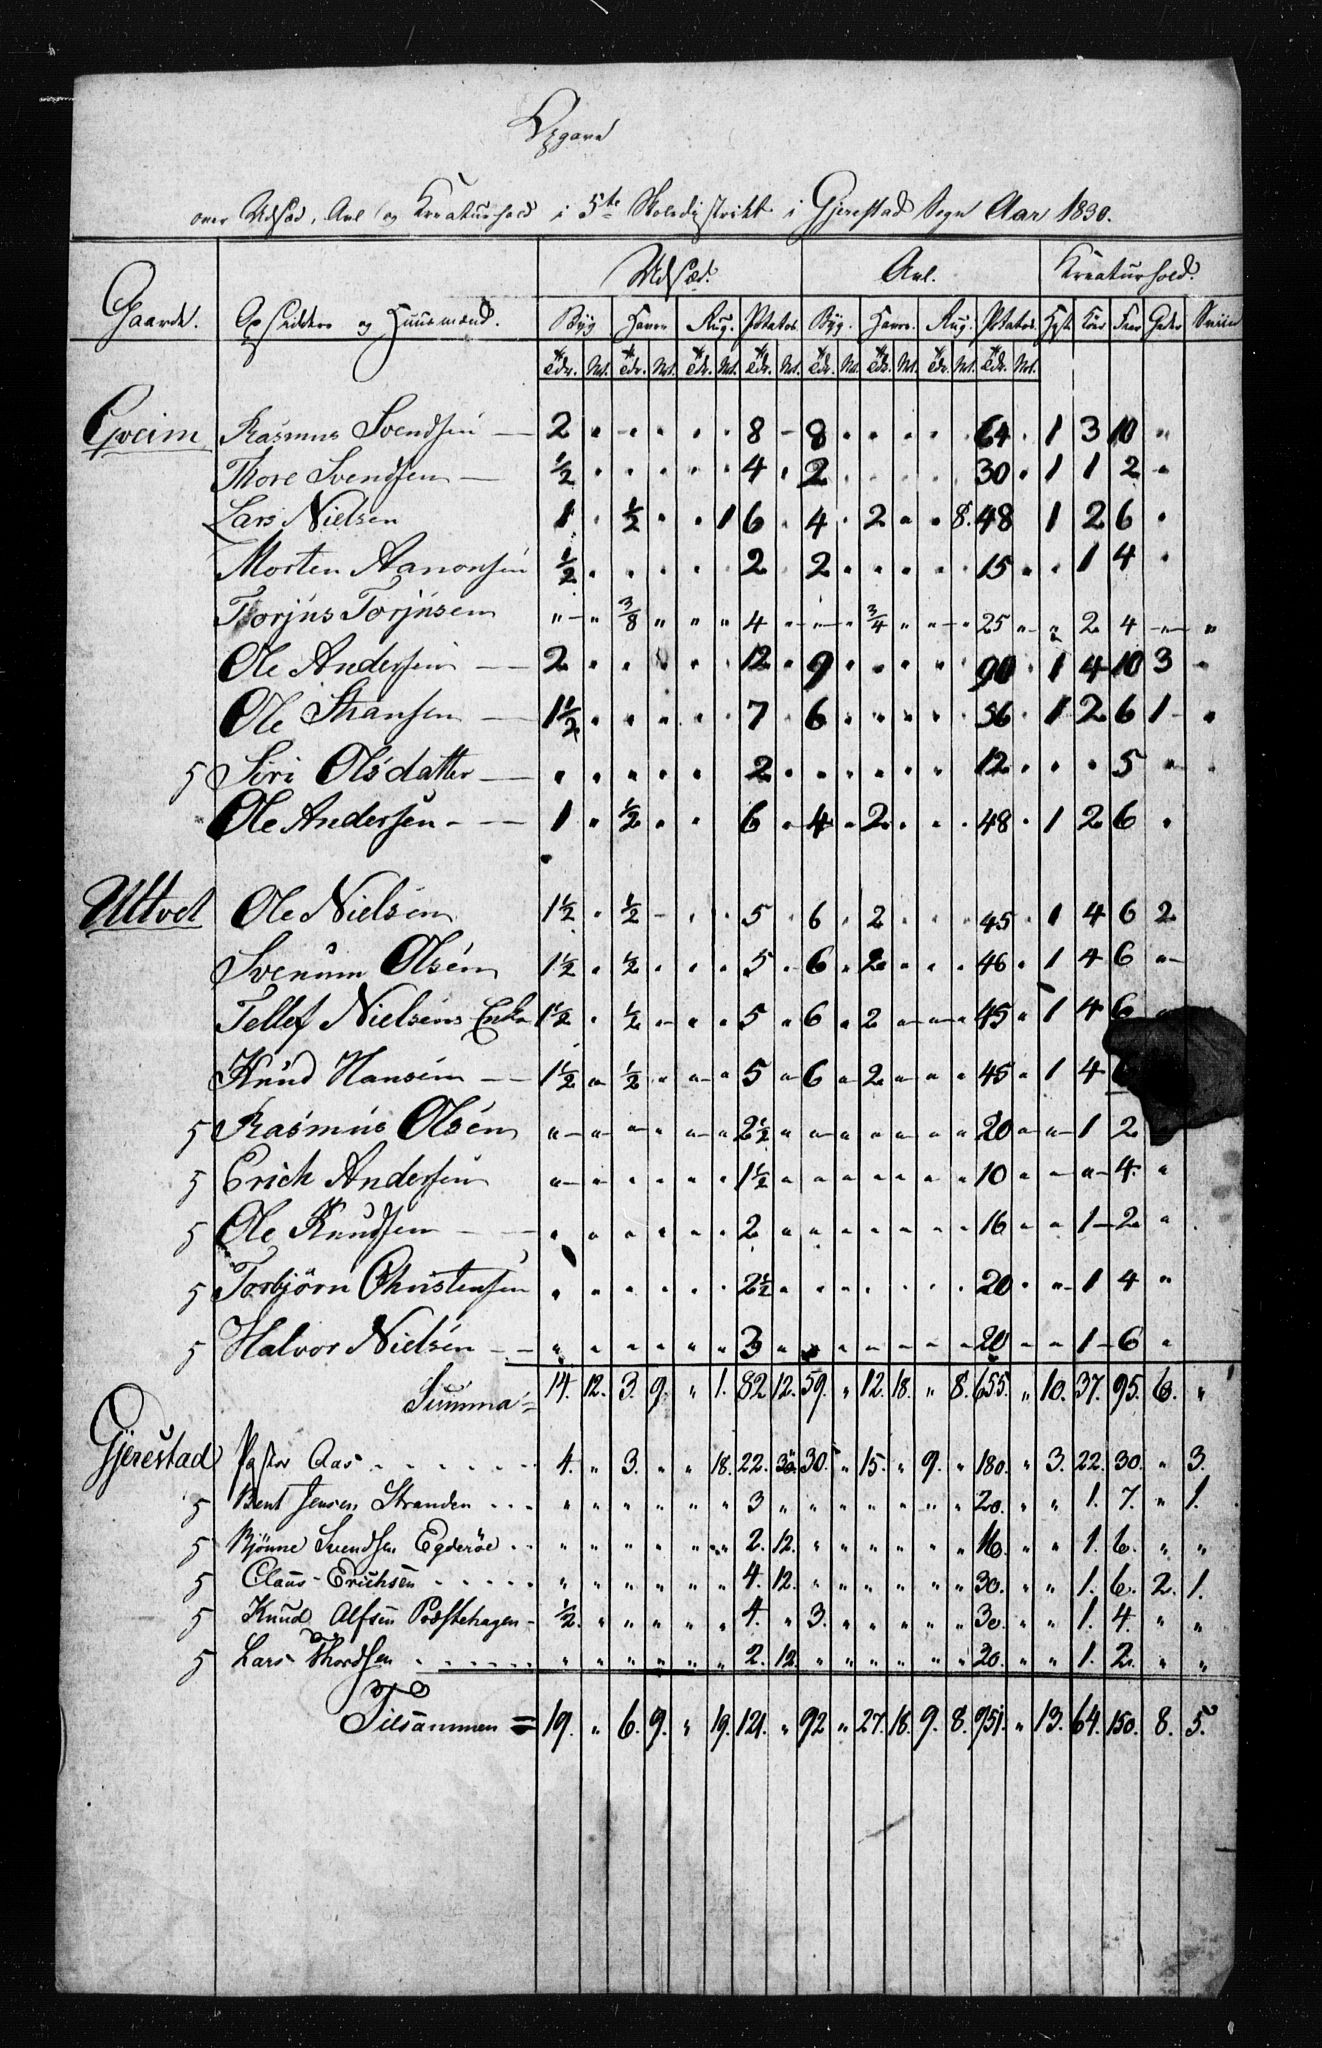 Opgave
over Udsæd, Avl og Kreaturhold i 5te Skoledistrikt i Gjerestad Sogn Aar 1830.
Gaarde. Opsiddere og Huusmænd. Udsæd. Avl. Kreaturhold.
Byg Havre Rug. Potatos. Byg. Havre. Rug. Potatos. Hest. Kiør Faar Geder Sviin
Tdr. Mt. Tdr. Mt. Tdr. Mt. Tdr. Mt. Tdr. Mt. Tdr. Mt. Tdr. Mt. Tdr. Mt.
Qveim Rasmus Svendsen — 2 " - " " " 8 - 8 " " " " " 64 " 1 3 10 "
Thore Svendsen — ½ " " " " " 4 " 2 " " " " " 30 " 1 1 2 "
Lars Nielsen 1 " ½ " " 1 6 " 4 " 2 " " 8. 48 1 2 6 "
Morten Aanonsen ½ " " " " " 2 " 2 " " " " " 15 " " 1 4 "
Torjus Torjusen " " 3/8 " " " 4 " " " 3/4 " " " 25 " " 2 4 " "
Ole Andersen — 2 " " " " " 12 " 9 " " " " " 90 " 1 4 10 3 "
Ole Hansen — 1½ " " " " " 7 " 6 " " " " " 56 " 1 2 6 1 "
5 Siri Olsdatter — " " " " " 2 " " " " " " " 12 " " " 5 " "
Ole Andersen - — 1 " ½ " " 6 " 4 " 2 " " " 48 " 1 2 6 "
Ultvet Ole Nielsen 1½ " ½ - " " 5 " 6 " 2 " " " 45 " 1 4 6 2
Svenum Olsen 1½ " ½ " " " 5 " 6 " 2 " " " 46 " 1 4 6 "
Tellef Nielsens Enke 1½ " ½ " " " 5 " 6 " 2 " " " 45 " 1 4 6 "
Knud Hansen — 1½ " ½ " " " 5 " 6 " 2 " " " 45 " 1 4
5 Rasmus Olsen " " " " " " 2½ " " " " " " " 20 " " 1 2
5 Erich Andersen " " " " " " 1½ " " " " " " " 10 " " " 4. "
5 Ole Knudsen — " " " " " " 2 " " " " " " " 16 " " 1 2 "
5 Torbjörn Christensen " " " " " " 2½ " " " " " " " 20 " " 1 4 "
5 Halvor Nielsen - " " " " " " 3 " " " " " " " 20 " " 1 6 "
Summa = 14. 12. 3. 9. " 1. 82 12. 59. " 12. 18. " 8. 655. " 10. 37. 95. 6. "
Gjerestad Pastor Aas . . . . . . 4. " 3. " " 18. 22. 30. " 15. " 9. " 180. " 3. 22. 30. " 3.
5 Bent Jensen Stranden . . . " " " " " " 3 " " " " " " " 20. " " 1. 7. " 1.
5 Bjönne Svendsen Egderöe . . " " " " " " 2. 12. " " " " " " 16. " " 1. 6. " "
5 Claus Erichsen . . . . . " " " " " " 4. 12. " " " " " " 30. " " 1. 6. 2. 1.
5 Knud Alfsen Præstehagen - ½. " " " " " 4. " 3. " " " " " 30. " " 1. 4. " "
5 Lars Thordsen . . . . . . " " " " " " 2. 12. " " " " " " 20. " " 1. 2. " "
Tilsammen = 19. " 6. 9. " 19. 121. " 92 " 27. 18. 9. 8. 951. " 13. 64. 150. 8. 5.